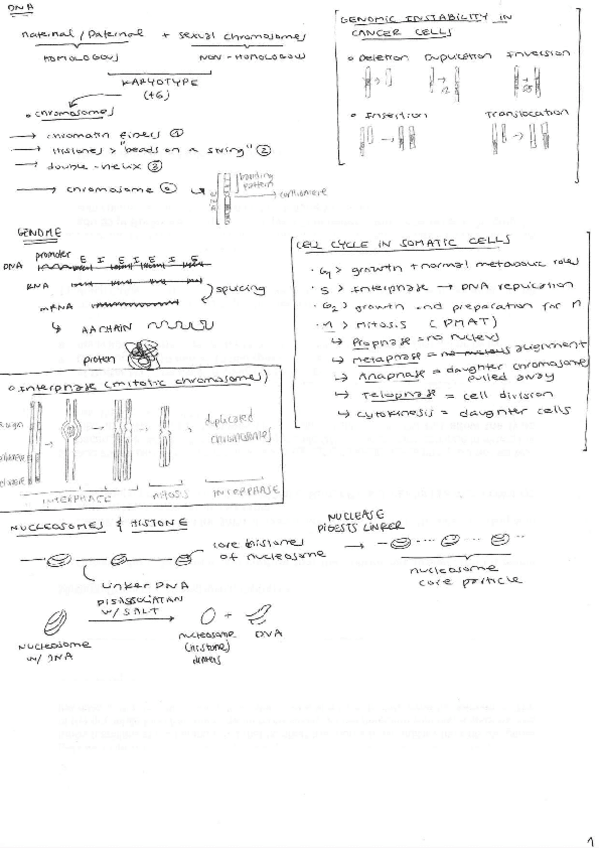 DNA
maternal/paternal + sexual chromosomes
HOMOLOGOUS NON-HOMOLOGOUS
KARYOTYPE
(46)
• chromosomes
→ chromatin fibers ①
→ Histones > "beads on a string" ②
→ double-helix ③
→ chromosome
banding pattern
centromere
GENOMIC INSTABILITY IN
CANCER CELLS
• Deletion Duplication Inversion
• Insertion Translocation
GENOME
promoter E I E I E I E
DNA
RNA
mRNA
splicing
↳ AA CHAIN
protein
CELL CYCLE IN SOMATIC CELLS
· G1 > growth + normal metabolic roles
· S > Interphase → DNA replication
· G2 > growth and preparation for M
· M > Mitosis (PMAT)
↳ Prophase = no nucleus
↳ Metaphase = no nucleus alignment
↳ Anaphase = daughter chromosome
pulled away
↳ Telophase = cell division
↳ Cytokinesis = daughter cells
• Interphase (mitotic chromosomes)
duplicated
chromosomes
INTERPHASE MITOSIS INTERPHASE
NUCLEOSOMES & HISTONE
core histones
of nucleosome
Linker DNA
NUCLEASE
DIGESTS LINKER
nucleosome
core particle
DISASSOCIATIAN
W/ SALT
nucleosome
w/ DNA
nucleosome
(histone)
dimers
+
DNA
1